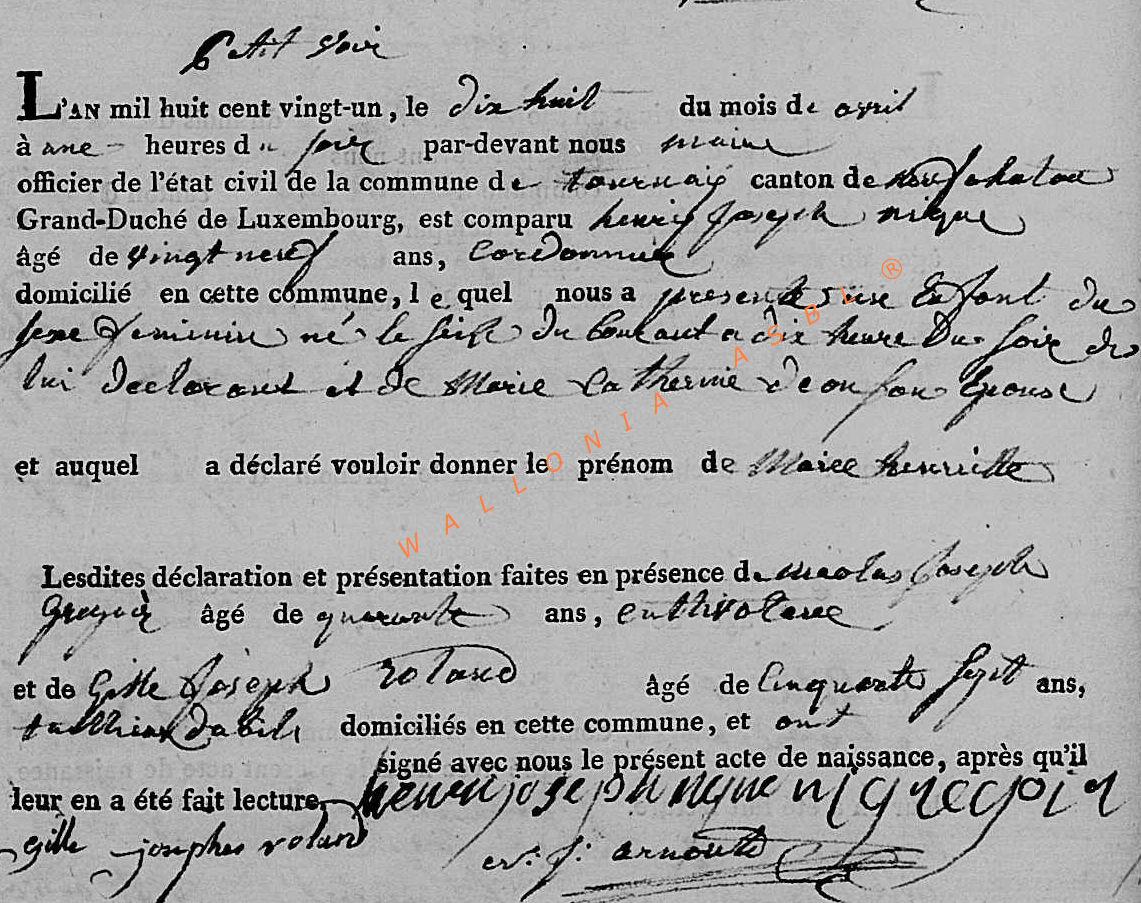 Petit voir
L'AN mil huit cent vingt-un, le dix huit du mois de avril
à une heures du soir par-devant nous maire
officier de l'état civil de la commune de tournay canton de neufchatau
Grand-Duché de Luxembourg, est comparu henry Joseph nique
âgé de vingt neuf ans, Cordonnier
domicilié en cette commune, lequel nous a presenté une Enfant du
sexe feminin né le seise du Courant a dix heure Du soir de
lui declarant et de Marie Catherine son Epouse
et auquel a déclaré vouloir donner le prénom de Marie henriette
Lesdites déclaration et présentation faites en présence de nicolas Joseph
Gregoir âgé de quarante ans, cultivateur
et de Gille Joseph roland âgé de Cinquante sept ans,
tailleur dabit domiciliés en cette commune, et ont
signé avec nous le présent acte de naissance, après qu'il
leur en a été fait lecture. henri joseph nique nj gregoir
gille josephe roland j: arnould
WALLONIA ASBL ®